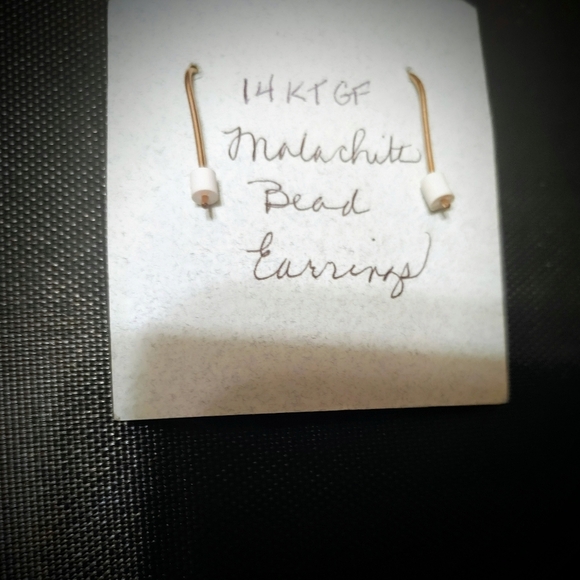 14KT GF
Malachite
Bead
Earrings